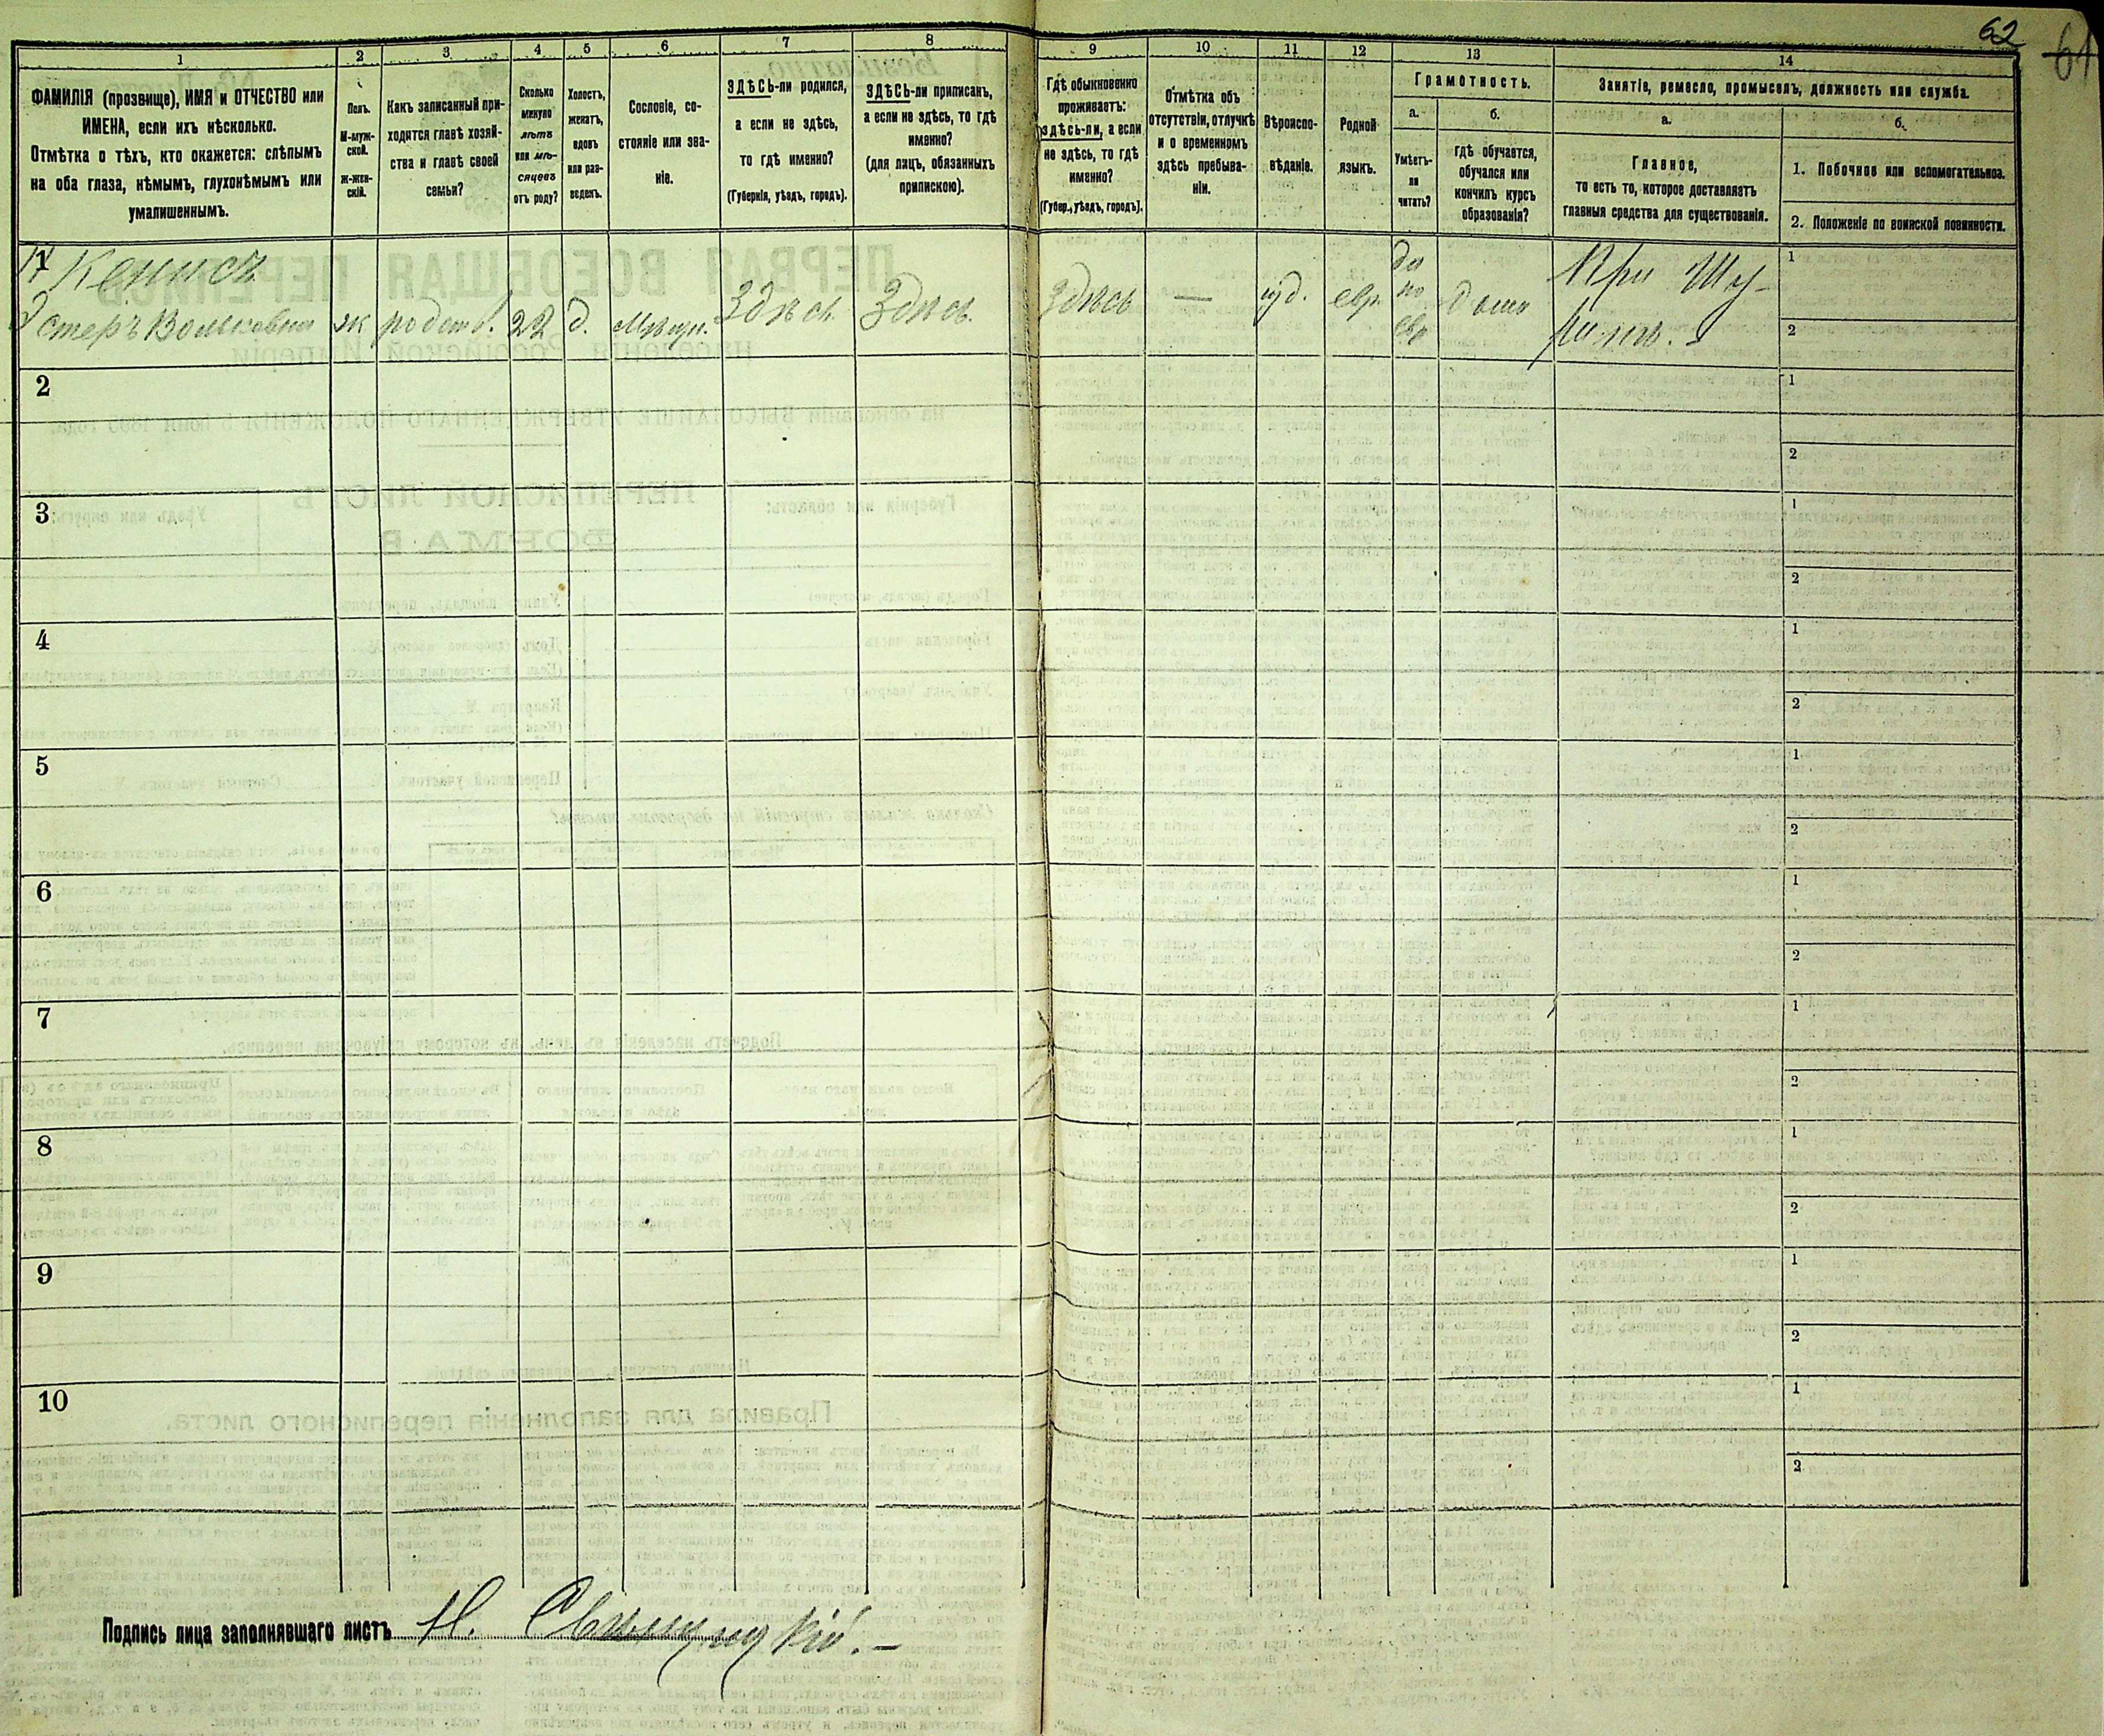 62
61
1 2 3 4 5 6 7 8 9 10 11 12 13 14
ФАМИЛІЯ (прозвище), ИМЯ и ОТЧЕСТВО или
ИМЕНА, если ихъ нѣсколько.
Отмѣтка о тѣхъ, кто окажется: слѣпымъ
на оба глаза, нѣмымъ, глухонѣмымъ или
умалишеннымъ.
Полъ.
М-муж-
ской.
Ж-жен-
скій.
Какъ записанный при-
ходятся главѣ хозяй-
ства и главѣ своей
семьи?
Сколько
минуло
лѣтъ
или мѣ-
сяцевъ
отъ роду?
Холостъ,
женатъ,
вдовъ
или раз-
веденъ.
Сословіе, со-
стояніе или зва-
ніе.
ЗДѢСЬ-ли родился,
а если не здѣсь,
то гдѣ именно?
(Губернія, уѣздъ, городъ).
ЗДѢСЬ-ли приписанъ,
а если не здѣсь, то гдѣ
именно?
(для лицъ, обязанныхъ
припискою).
Гдѣ обыкновенно
проживаетъ:
здѣсь-ли, а если
не здѣсь, то гдѣ
именно?
(Губер., уѣздъ, городъ).
Отмѣтка объ
отсутствіи, отлучкѣ
и о временномъ
здѣсь пребыва-
ніи.
Вѣроиспо-
вѣданіе.
Родной
языкъ.
Грамотность.
а.
Умѣетъ-
ли
читать?
б.
гдѣ обучается,
обучался или
кончилъ курсъ
образованія?
Занятіе, ремесло, промыселъ, должность или служба.
а.
Главное,
то есть то, которое доставляетъ
главныя средства для существованія.
б.
1. Побочное или вспомогательное.
2. Положеніе по воинской повинности.
1
Эстеръ Вольковна ж 22 д. Мѣщ. Здѣсь Здѣсь Здѣсь — іуд. евр. да по евр дома При
1
2
2
1
2
3
1
2
4
1
2
5
1
2
6
1
2
7
1
2
8
1
2
9
1
2
10
1
2
Подпись лица заполнявшаго листъ